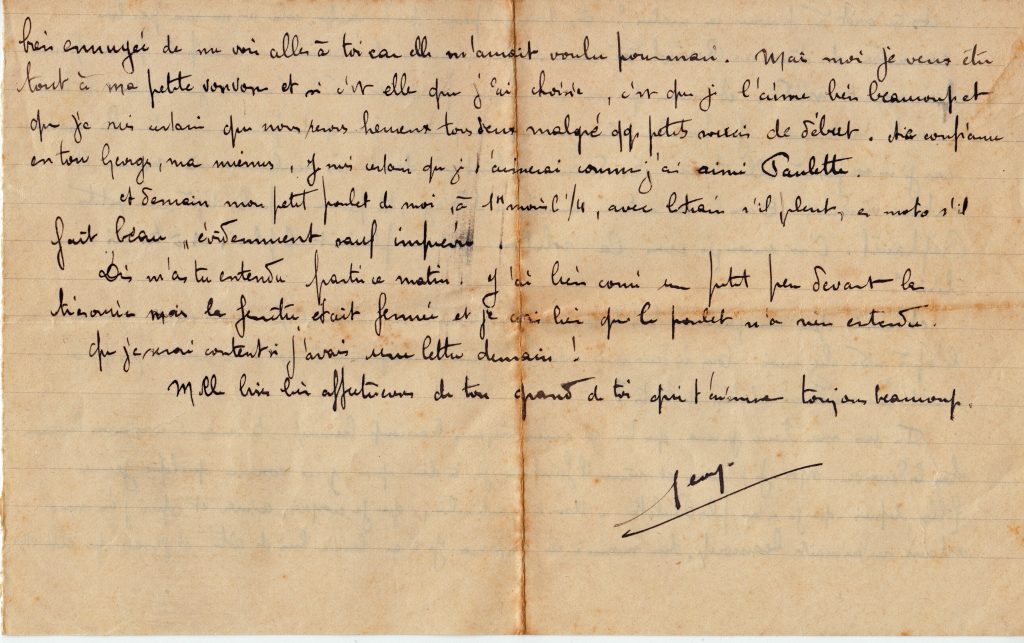 bien ennuyée de me voir aller à toi car elle m'aurait voulu pour mari. Mais moi je veux être
tout à ma petite vonvon et si c'est elle que j'ai choisie, c'est que je l'aime bien beaucoup et
que je suis certain que nous serons heureux tous deux malgré qqs petits soucis de début. Aie confiance
en ton Georges, ma mimine, je suis certain que je t'aimerai comme j'ai aimé Paulette.
et demain mon petit poulet de moi, à 1H moins 1/4, avec le train s'il pleut, en moto s'il
fait beau, évidemment sauf imprévu.
Dis m'as tu entendu partir ce matin. J'ai bien corné un petit peu devant la
mais la fenêtre était fermée et je crois bien que le poulet n'a rien entendu.
que je serai content si j'avais une lettre demain !
Mille bises bien affectueuses de ton grand de toi qui t'aime toujours beaucoup.